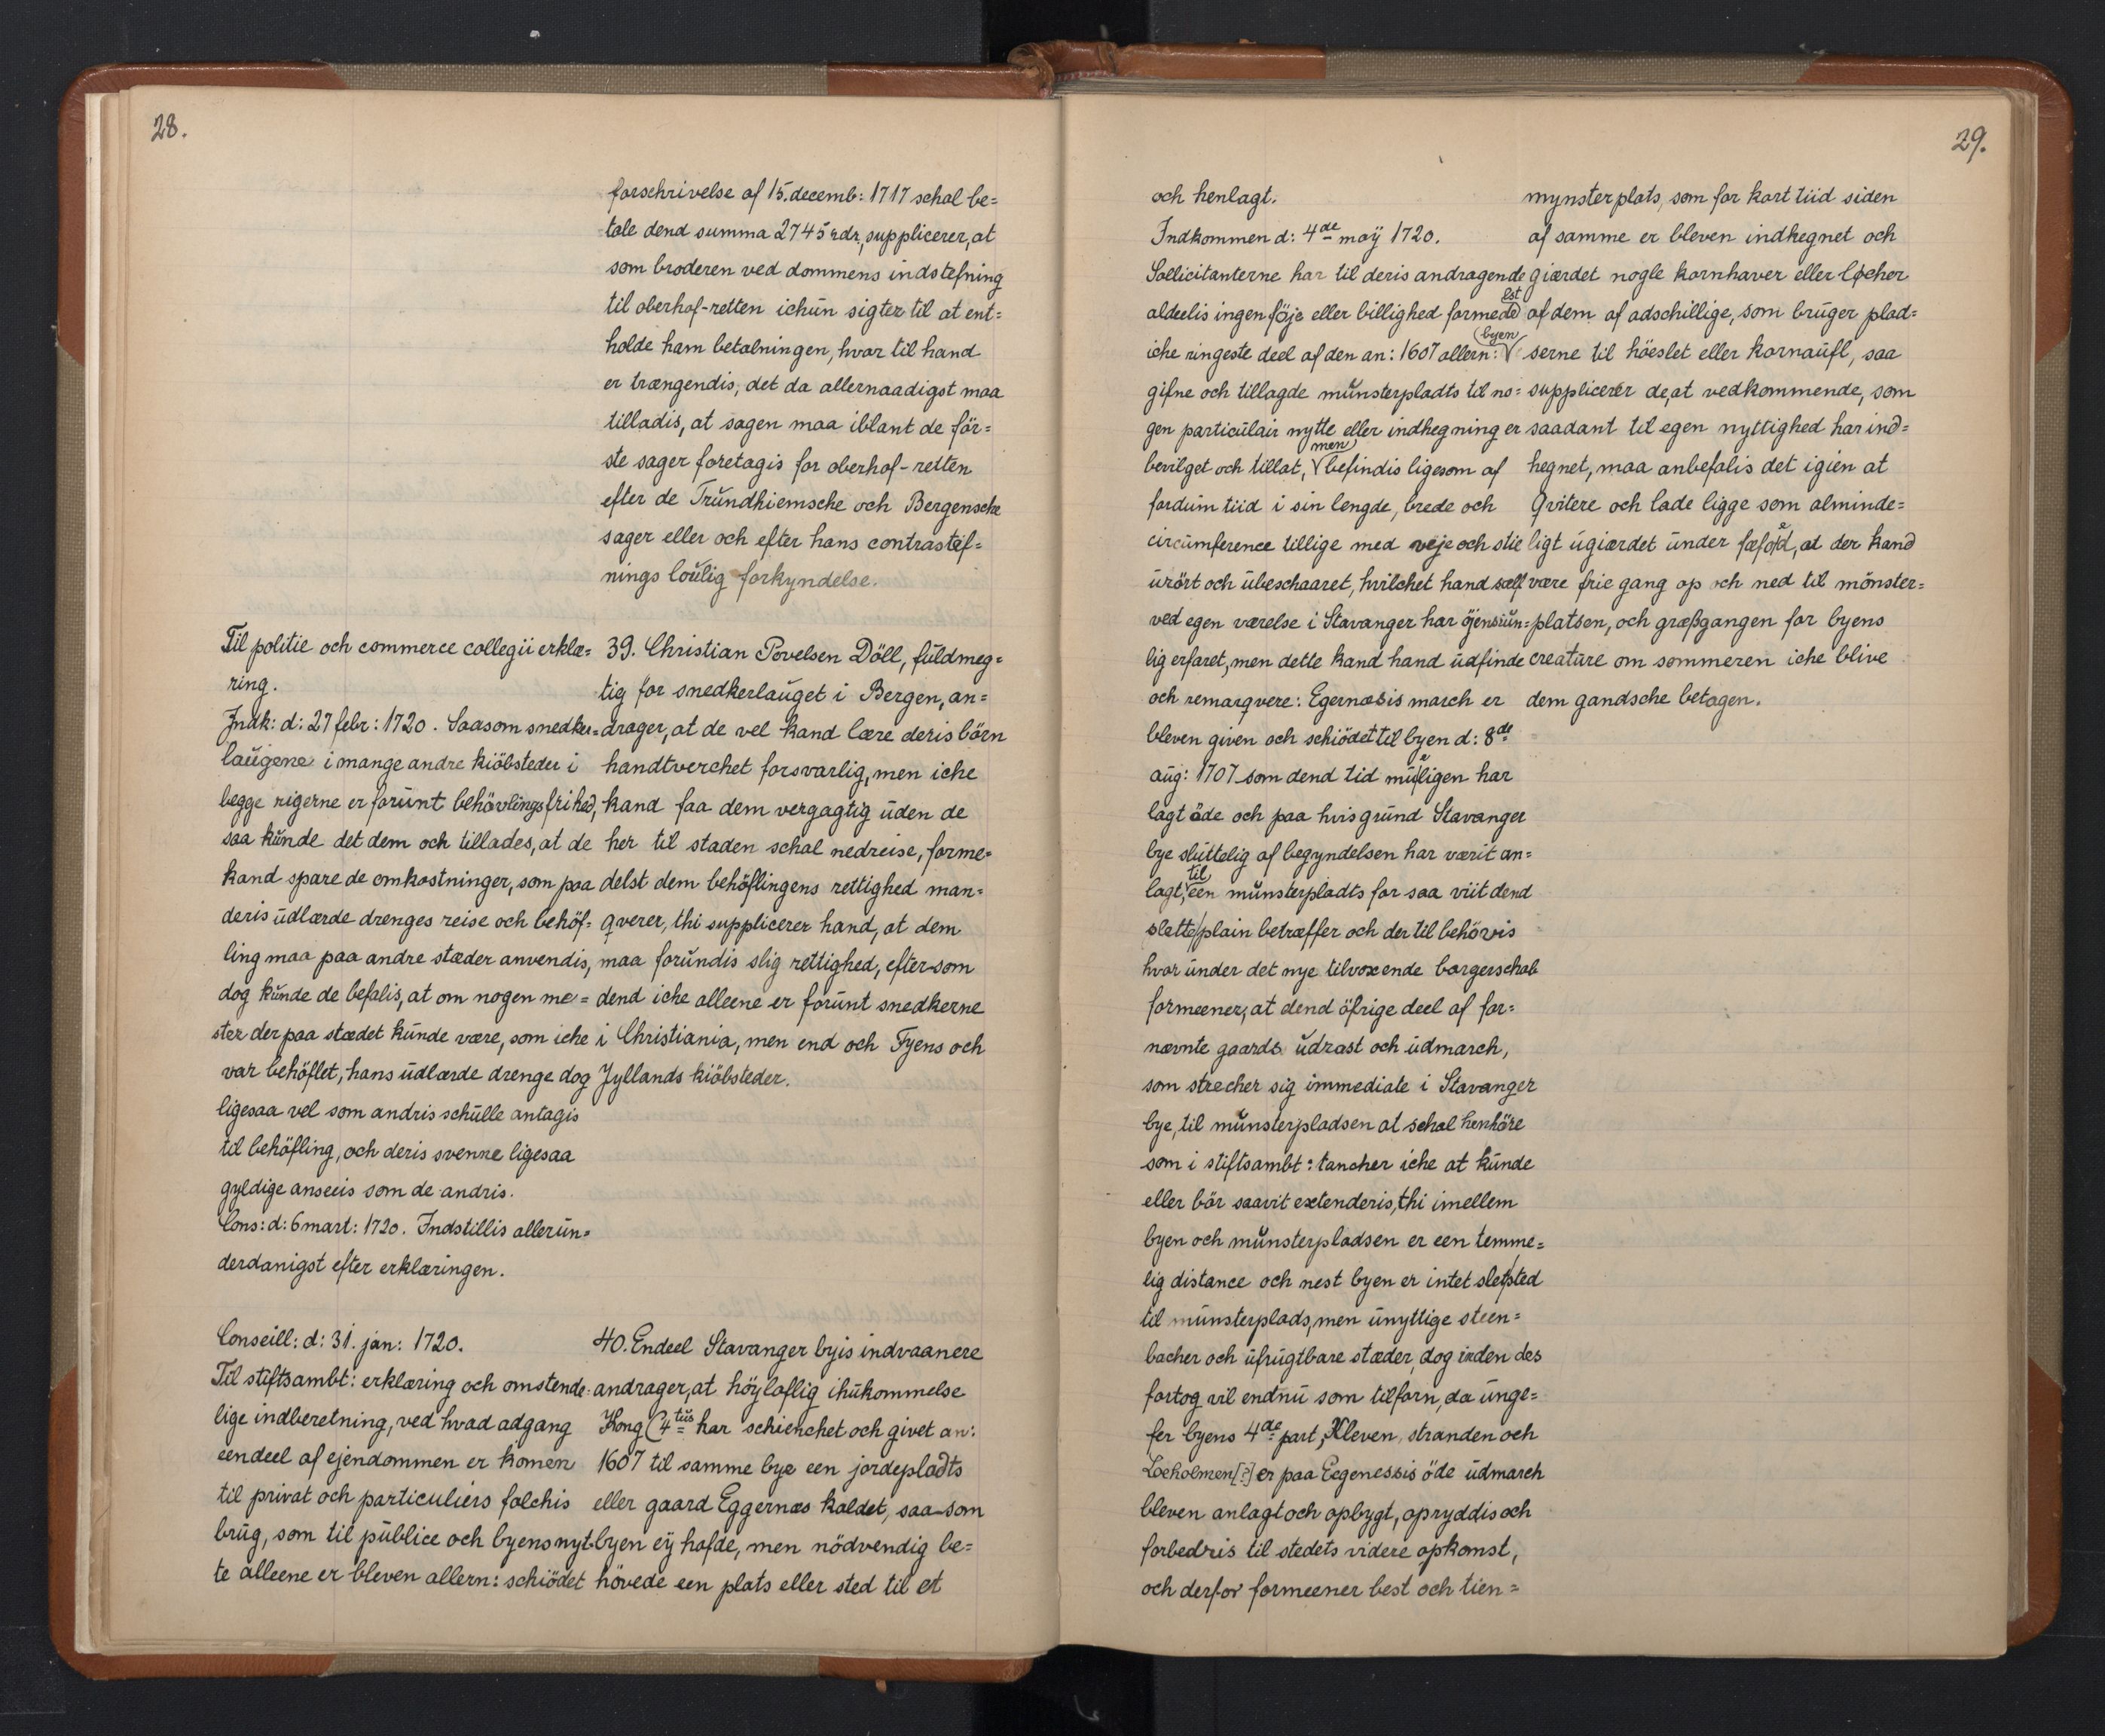 28.
forschrivelse af 15. decemb: 1717 schal be=
tale dend summa 2745 rdr, supplicerer, at
som broderen ved dommens indstefning
til oberhof-retten ichūn sigter til at ent=
holde ham betalningen, hvor til hand
er trængendis, det da allernaadigst maa
tilladis, at sagen maa iblant de för=
ste sager foretagis for oberhof-retten
efter de Trūndhiemsche och Bergensche
sager eller och efter hans contrastef=
nings loūlig forkyndelse.
Til politie och commerce collegii erklæ=
ring.
Indk: d: 27 febr: 1720. Saasom snedker=
laūgene i mange andre kiöbsteder i
begge rigerne er forūnt behövlingsfrihed,
saa kūnde det dem och tillades, at de
kand spare de omkostninger, som paa
deris ūdlærde drenges reise och behöf=
ling maa paa andre stæder anvendis,
dog kūnde de befalis, at om nogen me=
ster der paa stædet kūnde være, som iche
var behöflet, hans ūdlærde drenge dog
ligesaa vel som andris schūlle antagis
til behöfling, och deris svenne ligesaa
gyldige anseeis som de andris.
Cons: d: 6 mart: 1720. Indstillis allerūn=
derdanigst efter erklæringen.
39. Christian Povelsen Döll, fūldmeg=
tig for snedkerlaūget i Bergen, an=
drager, at de vel kand lære deris börn
handtverchet forsvarlig, men iche
kand faa dem vergagtig ūden de
her til staden schal nedreise, forme=
delst dem behöflingens rettighed man=
qverer, thi supplicerer hand, at dem
maa forūndis slig rettighed, efter som
dend iche alleene er forūnt snedkerne
i Christiania, men end och Fyens och
Jyllands kiöbsteder.
Conseill: d: 31. jan: 1720.
Til stiftsambt: erklæring och omstende=
lige indberetning, ved hvad adgang
eendeel af ejendommen er komen
til privat och particuliers folchis
brūg, som til pūblice och byens nyt=
te alleene er bleven allern: schiödet
40. Endeel Stavanger byis indvaanere
andrager, at höyloflig ihūkommelse
Kong C 4tūs har schienchet och givet an:
1607 til samme bye een jordepladts
eller gaard Eggernæs kaldet, saa som
byen eÿ hafde, men nödvendig be=
hövede een plats eller sted til et
29.
och henlagt.
Indkommen d: 4de maÿ 1720.
Sollicitanterne har til deris andragende
aldeelis ingen föje eller billighed formedelst
iche ringeste deel af den an: 1607 allern: byen
gifne och tillagde mūnsterpladts til no=
gen particūlair nytte eller indhegning er
bevilget och tillat, men befindis ligesom af
fordum tiid i sin lengde, brede och
circūmference tillige med veje och stie
ūrört och ūbeschaaret, hvilchet hand sælf
ved egen værelse i Stavanger har öjensiūn=
lig erfaret, men dette kand hand ūdfinde
och remarqvere: Egernæsis march er
bleven given och schiödet til byen d: 8de
aūg: 1707 som dend tid mūeligen har
lagt öde och paa hvis grūnd Stavanger
bye slūttelig af begyndelsen har værit an=
lagt, til een mūnsterpladts for saa viit dend
slette plain betræffer och der til behövis
hvor ūnder det nye tilvoxende borgerschab
formeener, at dend öfrige deel af for=
nævnte gaards ūdrast och ūdmarch,
som strecher sig immediate i Stavanger
bye, til mūnsterpladsen at schal henhöre
som i stiftsambt: tancher iche at kūnde
eller bör saavit extenderis, thi imellem
byen och mūnsterpladsen er een temme=
lig distance och nest byen er intet slet sted
til mūnsterplads, men ūnyttige steen=
bacher och ūfrūgtbare stæder, dog inden des
fortog vil endnū som tilforn, da ūnge=
fer byens 4de part, Kleven, stranden och
Loeholmen[?] er paa Eegenessis öde ūdmarch
bleven anlagt och opbygt, opryddis och
forbedris til stedets videre opkomst,
och derfor formeener best och tien=
mynsterplats, som for kort tiid siden
af samme er bleven indhegnet och
giærdet nogle kornhaver eller løcher
af dem af adschillige, som brūger plad=
serne til höeslet eller kornaūfl, saa
supplicerer de, at vedkommende, som
saadant til egen nyttighed har ind=
hegnet, maa anbefalis det igien at
qvitere och lade ligge som alminde=
ligt ūgiærdet ūnder fæfoed, at der kand
være frie gang op och ned til mönster=
platsen, och græsgangen for byens
creatūre om sommeren iche blive
dem gandsche betagen.